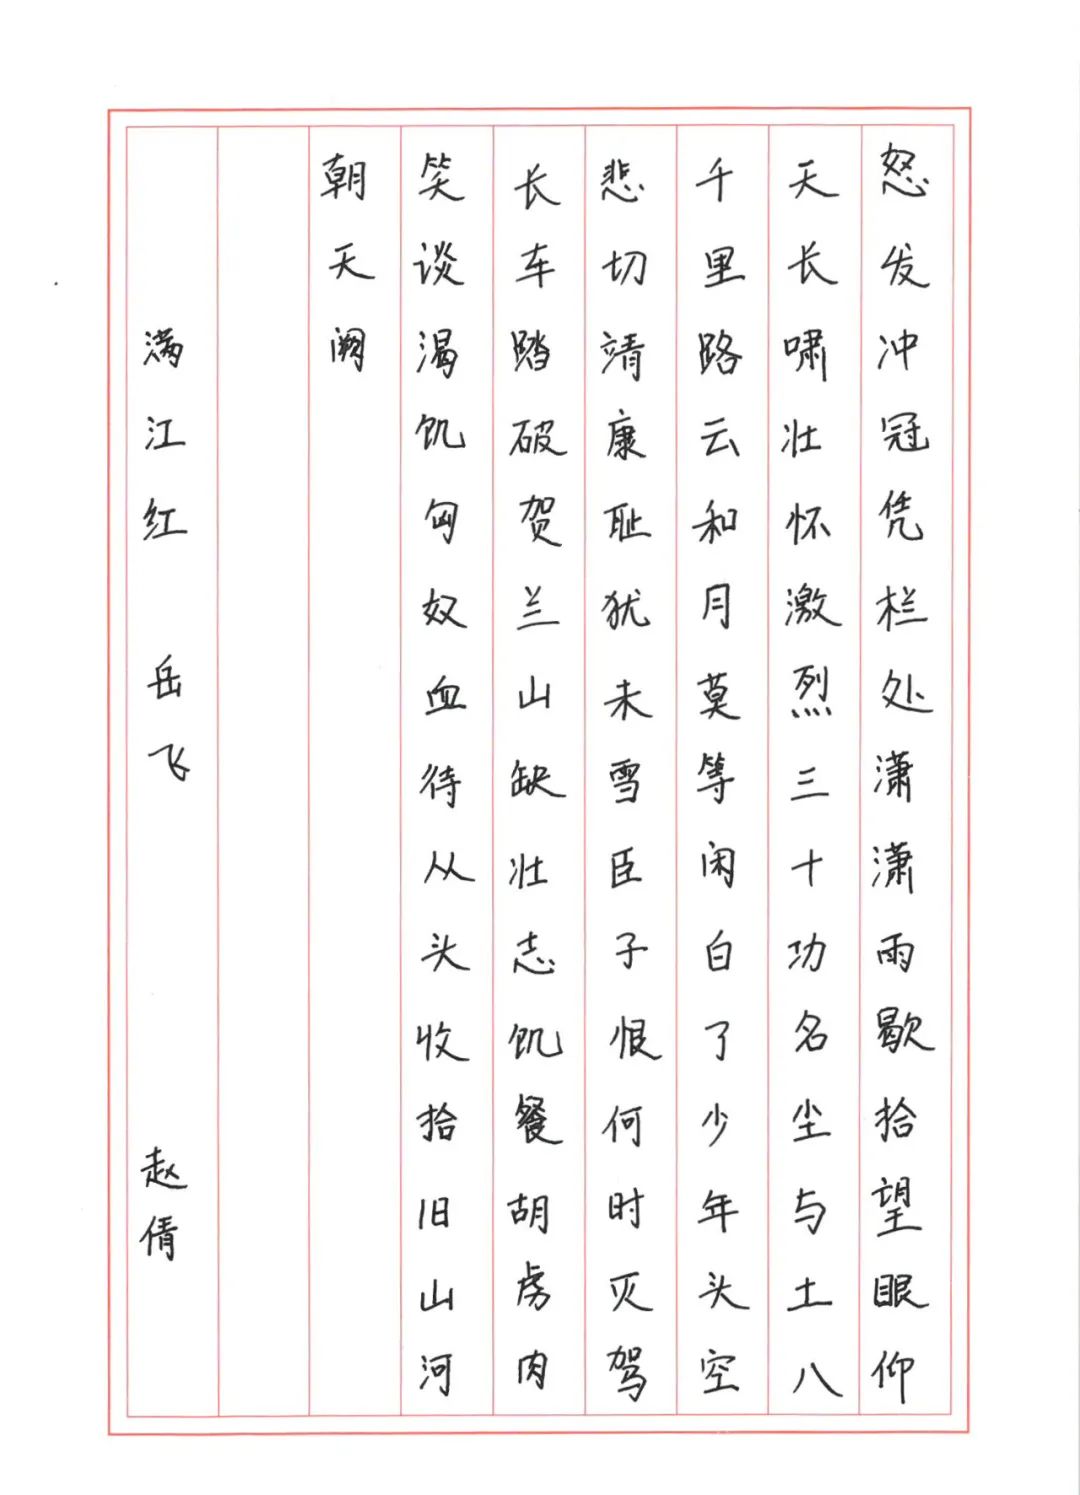 怒发冲冠凭栏处潇潇雨歇拾望眼仰
天长啸壮怀激烈三十功名尘与土八
千里路云和月莫等闲白了少年头空
悲切靖康耻犹未雪臣子恨何时灭驾
长车踏破贺兰山缺壮志饥餐胡虏肉
笑谈渴饥匈奴血待从头收拾旧山河
朝天阙
满江红 岳飞 赵倩